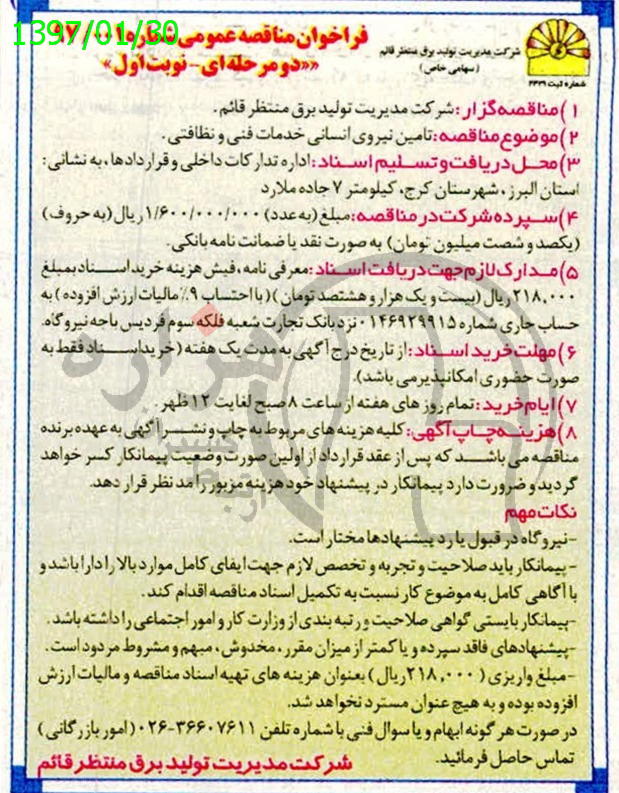 1397/01/30
فراخوان مناقصه عمومی شماره ۹۷/۰۰۱
«دو مرحله ای - نوبت اول»
شرکت مدیریت تولید برق منتظر قائم
(سهامی خاص)
شماره ثبت ۲۴۲۹
۱) مناقصه گزار: شرکت مدیریت تولید برق منتظر قائم.
۲) موضوع مناقصه: تامین نیروی انسانی خدمات فنی و نظافتی.
۳) محل دریافت و تسلیم اسناد: اداره تدارکات داخلی و قراردادها، به نشانی:
استان البرز، شهرستان کرج، کیلومتر ۷ جاده ملارد
۴) سپرده شرکت در مناقصه: مبلغ (به عدد) ۱/۶۰۰/۰۰۰/۰۰۰ ریال (به حروف)
(یکصد و شصت میلیون تومان) به صورت نقد یا ضمانت نامه بانکی.
۵) مدارک لازم جهت دریافت اسناد: معرفی نامه، فیش هزینه خرید اسناد بمبلغ
۲۱۸،۰۰۰ ریال (بیست و یک هزار و هشتصد تومان) (با احتساب ۹٪ مالیات ارزش افزوده) به
حساب جاری شماره ۰۱۴۶۹۲۹۹۱۵ نزد بانک تجارت شعبه فلکه سوم فردیس باجه نیروگاه.
۶) مهلت خرید اسناد: از تاریخ درج آگهی به مدت یک هفته (خرید اسناد فقط به
صورت حضوری امکانپذیر می باشد).
۷) ایام خرید: تمام روز های هفته از ساعت ۸ صبح لغایت ۱۲ ظهر.
۸) هزینه چاپ آگهی: کلیه هزینه های مربوط به چاپ و نشر آگهی به عهده برنده
مناقصه می باشد که پس از عقد قرارداد از اولین صورت وضعیت پیمانکار کسر خواهد
گردید و ضرورت دارد پیمانکار در پیشنهاد خود هزینه مزبور را مد نظر قرار دهد.
نکات مهم
-نیروگاه در قبول یا رد پیشنهادها مختار است.
- پیمانکار باید صلاحیت و تجربه و تخصص لازم جهت ایفای کامل موارد بالا را دارا باشد و
با آگاهی کامل به موضوع کار نسبت به تکمیل اسناد مناقصه اقدام کند.
-پیمانکار بایستی گواهی صلاحیت و رتبه بندی از وزارت کار و امور اجتماعی را داشته باشد.
-پیشنهادهای فاقد سپرده و یا کمتر از میزان مقرر، مخدوش، مبهم و مشروط مردود است.
-مبلغ واریزی (۲۱۸،۰۰۰ ریال) بعنوان هزینه های تهیه اسناد مناقصه و مالیات ارزش
افزوده بوده و به هیچ عنوان مسترد نخواهد شد.
در صورت هر گونه ابهام و یا سوال فنی با شماره تلفن ۳۶۶۰۷۶۱۱-۰۲۶ (امور بازرگانی)
تماس حاصل فرمائید.
شرکت مدیریت تولید برق منتظر قائم
هزاره